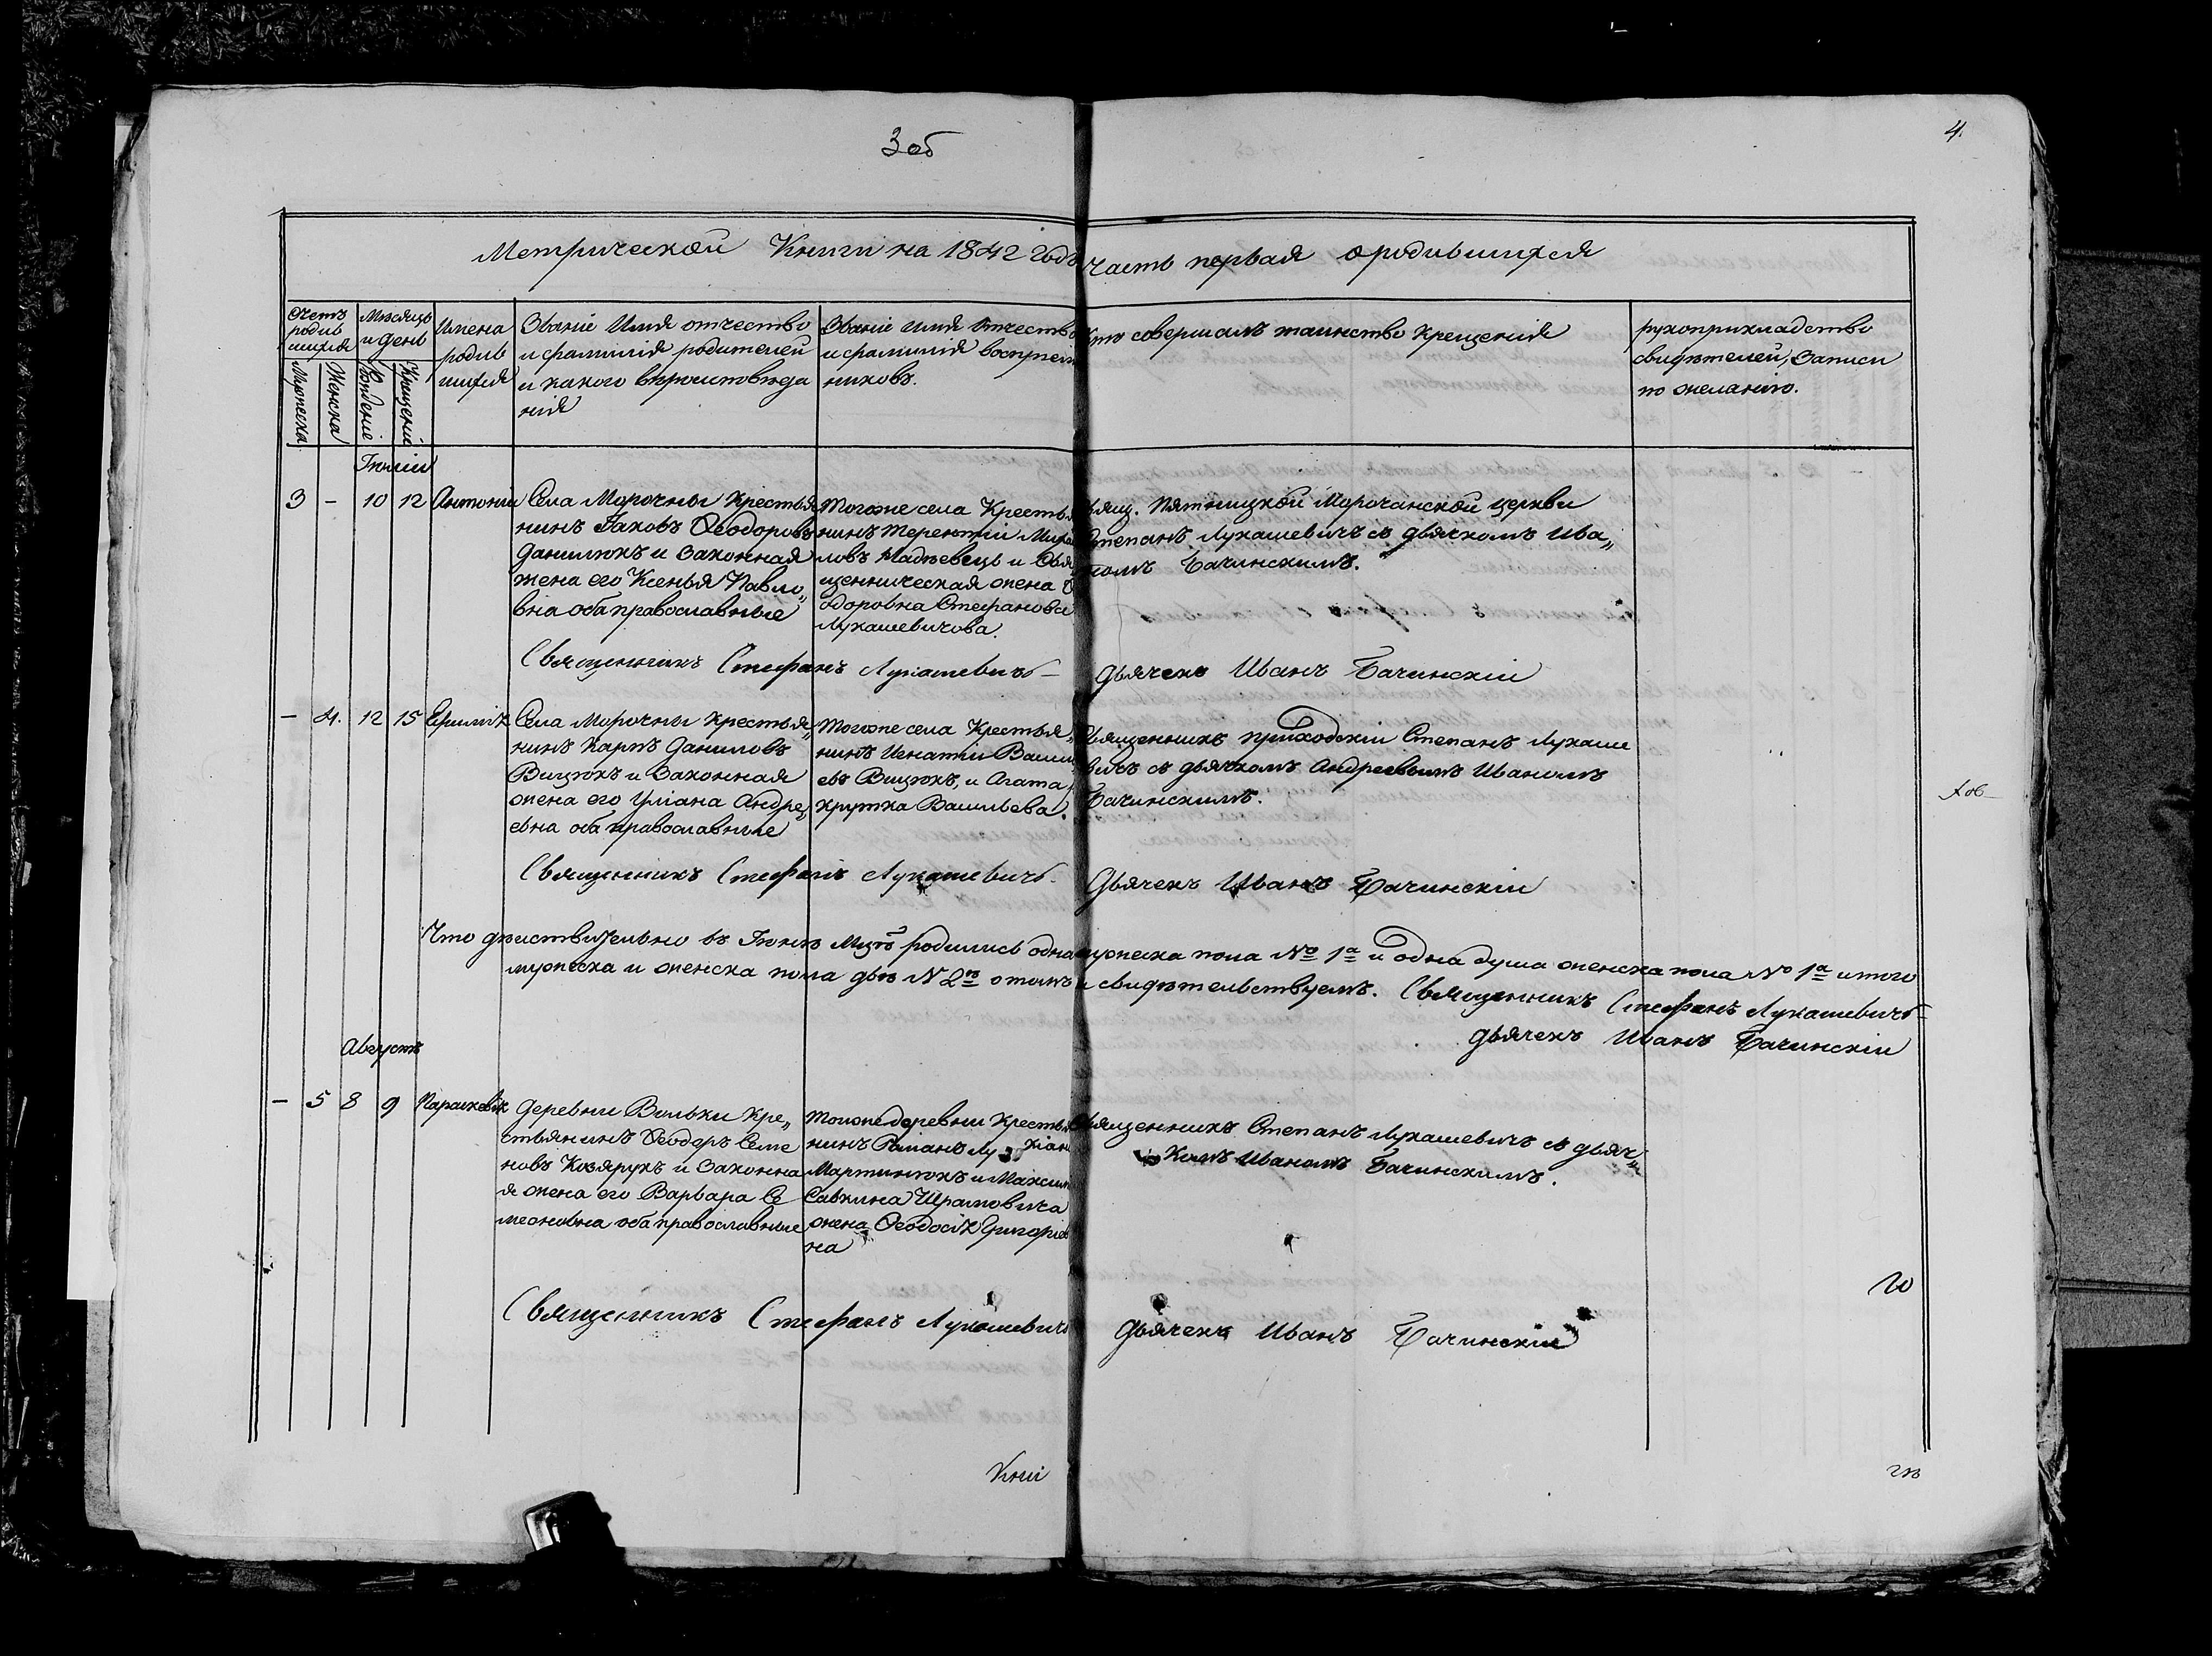 3 об
4.
Метрической Книги на 1842 годъ часть первая о родившихся
Счетъ родив шихся
Мѣсяцъ и день
Имена родив шихся
Званіе Имя отчество и фамилія родителей и какого вѣроисповѣда нія
Званіе имя отчество и фамилія воспріем никовъ.
Кто совершалъ таинство крещенія
рукоприкладство свидѣтелей, записи по желанію.
Мужеска
Женска
Рожденіе
Крещеніе
Іюнія
3 – 10 12 Антоній
Села Морочны Крестья
нинъ Іаковъ Ѳеодоровъ
Данилюкъ и законная
жена его Ксенья Павло„
вна оба православные
Тогоже села Крестья
нинъ Терентій Михай
ловъ Мадѣевецъ и Свя
щенническая жена Ѳ
одоровна Стефанова
Лукашевичова.
Свящ. Пятницкой Морочанской церкви
Степанъ Лукашевичъ съ дьячкомъ Ива„
номъ Бачинскимъ.
Священникъ Стефанъ Лукашевичъ – Дьячекъ Иванъ Бачинскій
– 4. 12 15
Села Морочны крестья„
нинъ Карпъ Даниловъ
Вицюкъ и законная
жена его Уліана Андре„
евна оба православные
Тогоже села Крестья„
нинъ Игнатій Васил
евъ Вицюкъ, и Агата
Крутка Васильева.
Священникъ приходскій Степанъ Лукаше
вичъ съ дьячкомъ Андреевымъ Иваномъ
Бачинскимъ.
Хов
Священникъ Стефанъ Лукашевичъ – Дьячекъ Иванъ Бачинскій
Что дѣиствительно въ Іюнѣ Мцѣ родились одна мужеска пола № 1а и одна душа женска пола № 1а итого
мужеска и женска пола двѣ № 2ѣ о томъ и свидѣтельствуемъ. Священникъ Стефанъ Лукашевичъ –
Дьячекъ Иванъ Бачинскій
Августъ
– 5 8 9 Параскевія
Деревни Вольки Кре„
стьянинъ Ѳеодоръ Семе
новъ Козярукъ и законна
я жена его Варвара Се
меоновна оба православные
Тоюже деревни Крестья
нинъ Романъ Лу кіан
Мартинюкъ и Максим
Савкина Шрамовича
жена Ѳеодосія Григоріев
на
Священникъ Степанъ Лукашевичъ съ дьяч„
комъ Иваномъ Бачинскимъ.
Священникъ Стефанъ Лукашевичъ Дьячекъ Иванъ Бачинскій
Кни